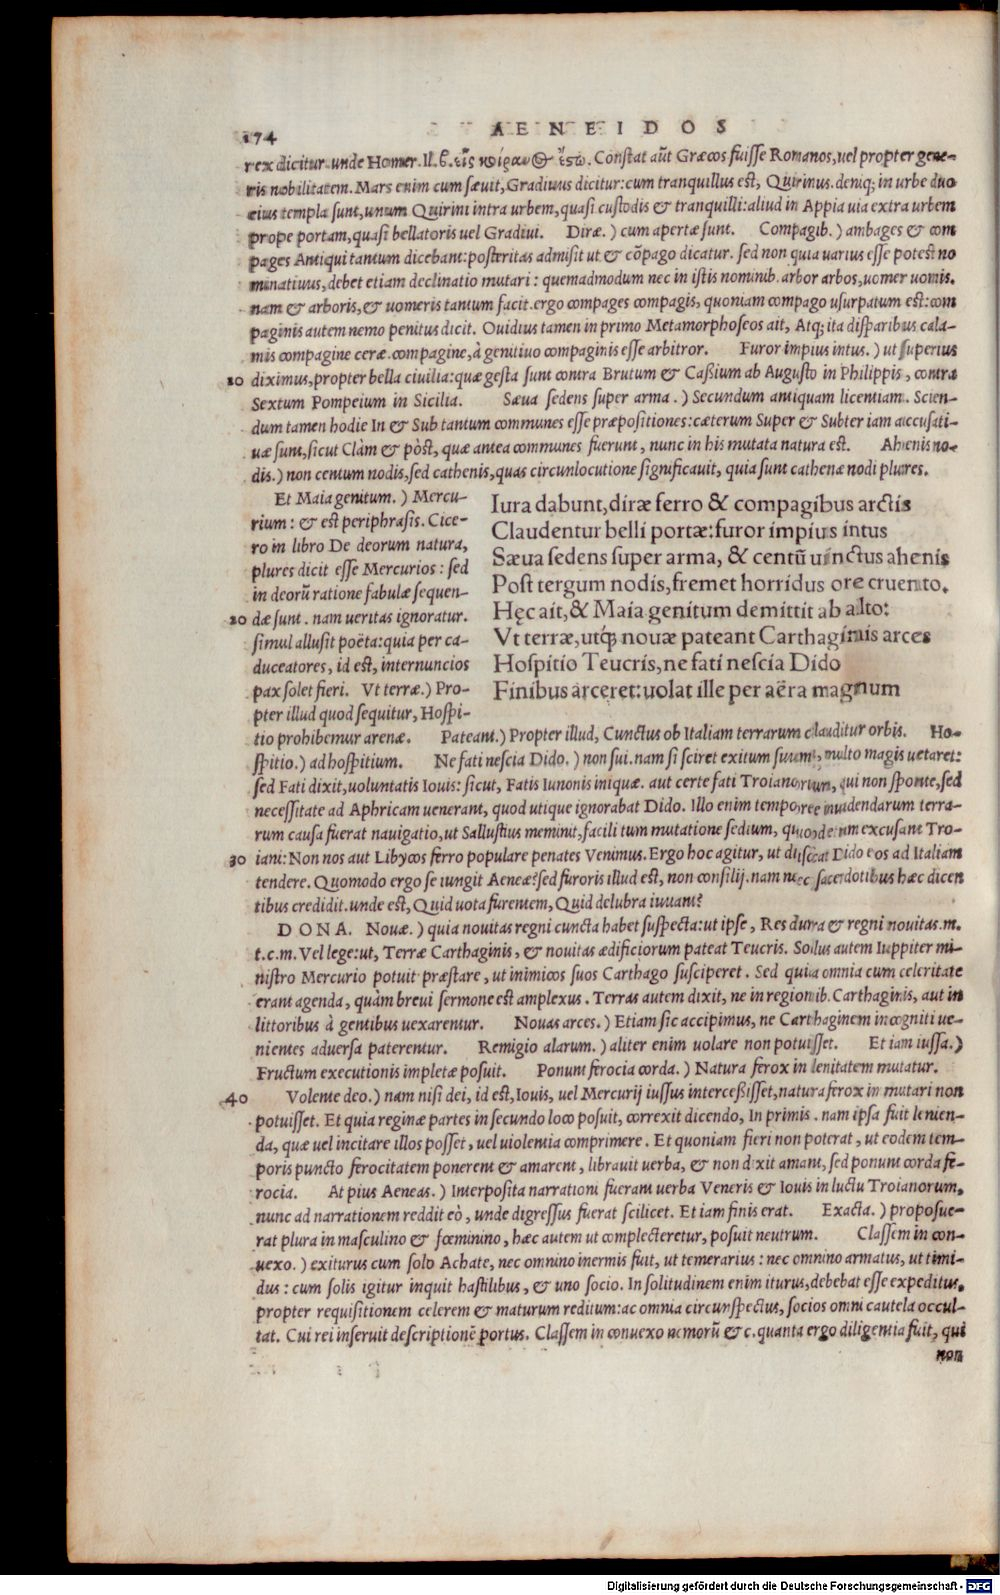 174
AENEIDOS
rex dicitur. unde Homer. Il. β. εἷς κοίρανος ἔστω. Constat aūt Græcos fuisse Romanos, uel propter gene-
ris nobilitatem. Mars enim cum sæuit, Gradiuus dicitur: cum tranquillus est, Quirinus. deniq; in urbe duo
eius templa sunt, unum Quirini intra urbem, quasi custodis & tranquilli: aliud in Appia uia extra urbem
prope portam, quasi bellatoris uel Gradiui. Diræ.) cum apertæ sunt. Compagib.) ambages & com
pages Antiqui tantum dicebant: posteritas admisit ut & cōpago dicatur. sed non quia uarius esse potest no
minatiuus, debet etiam declinatio mutari: quemadmodum nec in istis nominib. arbor arbos, uomer uomis.
nam & arboris, & uomeris tantum facit. ergo compages compagis, quoniam compago usurpatum est: com
paginis autem nemo penitus dicit. Ouidius tamen in primo Metamorphoseos ait, Atq; ita disparibus cala-
mis compagine ceræ. compagine, à genitiuo compaginis esse arbitror. Furor impius intus.) ut superius
10 diximus, propter bella ciuilia: quæ gesta sunt contra Brutum & Caßium ab Augusto in Philippis, contra
Sextum Pompeium in Sicilia. Sæua sedens super arma.) Secundum antiquam licentiam. Scien-
dum tamen hodie In & Sub tantum communes esse præpositiones: cæterum Super & Subter iam accusati-
uæ sunt, sicut Clàm & pòst, quæ antea communes fuerunt, nunc in his mutata natura est. Ahenis no-
dis.) non centum nodis, sed cathenis, quas circunlocutione significauit, quia sunt cathenæ nodi plures.
Et Maia genitum.) Mercu-
rium: & est periphrasis. Cice-
ro in libro De deorum natura,
plures dicit esse Mercurios: sed
in deorū ratione fabulæ sequen-
20 dæ sunt. nam ueritas ignoratur.
simul allusit poëta: quia per ca-
duceatores, id est, internuncios
pax solet fieri. Vt terræ.) Pro-
pter illud quod sequitur, Hospi-
Iura dabunt, diræ ferro & compagibus arctis
Claudentur belli portæ: furor impius intus
Sæua sedens super arma, & centū uinctus ahenis
Post tergum nodis, fremet horridus ore cruento.
Hęc ait, & Maia genitum demittit ab alto:
Vt terræ, utq; nouæ pateant Carthaginis arces
Hospitio Teucris, ne fati nescia Dido
Finibus arceret: uolat ille per aëra magnum
tio prohibemur arenæ. Pateant.) Propter illud, Cunctus ob Italiam terrarum clauditur orbis. Ho-
spitio.) ad hospitium. Ne fati nescia Dido.) non sui. nam si sciret exitum suum, multo magis uetaret:
sed Fati dixit, uoluntatis Iouis: sicut, Fatis Iunonis iniquæ. aut certe fati Troianorum, qui non sponte, sed
necessitate ad Aphricam uenerant, quod utique ignorabat Dido. Illo enim tempore inuidendarum terra-
rum causa fuerat nauigatio, ut Sallustius meminit, facili tum mutatione sedium, quod etiam excusant Tro-
30 iani: Non nos aut Libycos ferro populare penates Venimus. Ergo hoc agitur, ut discat Dido eos ad Italiam
tendere. Quomodo ergo se iungit Aeneæ? sed furoris illud est, non consilij. nam nec sacerdotibus hæc dicen
tibus credidit. unde est, Quid uota furentem, Quid delubra iuuant?
DONA. Nouæ.) quia nouitas regni cuncta habet suspecta: ut ipse, Res dura & regni nouitas. m.
t. c. m. Vel lege: ut, Terræ Carthaginis, & nouitas ædificiorum pateat Teucris. Solus autem Iuppiter mi-
nistro Mercurio potuit præstare, ut inimicos suos Carthago susciperet. Sed quia omnia cum celeritate
erant agenda, quàm breui sermone est amplexus. Terras autem dixit, ne in regionib. Carthaginis, aut in
littoribus à gentibus uexarentur. Nouas arces.) Etiam sic accipimus, ne Carthaginem incogniti ue-
nientes aduersa paterentur. Remigio alarum.) aliter enim uolare non potuisset. Et iam iussa.)
Fructum executionis impletæ posuit. Ponunt ferocia corda.) Natura ferox in lenitatem mutatur.
40 Volente deo.) nam nisi dei, id est, Iouis, uel Mercurij iussus interceßisset, natura ferox in mutari non
potuisset. Et quia reginæ partes in secundo loco posuit, correxit dicendo, In primis. nam ipsa fuit lenien-
da, quæ uel incitare illos posset, uel uiolentia comprimere. Et quoniam fieri non poterat, ut eodem tem-
poris puncto ferocitatem ponerent & amarent, librauit uerba, & non dixit amant, sed ponunt corda fe-
rocia. At pius Aeneas.) Interposita narrationi fuerant uerba Veneris & Iouis in luctu Troianorum,
nunc ad narrationem reddit eò, unde digressus fuerat scilicet. Et iam finis erat. Exacta.) proposue-
rat plura in masculino & fœminino, hæc autem ut complecteretur, posuit neutrum. Classem in con-
uexo.) exiturus cum solo Achate, nec omnino inermis fuit, ut temerarius: nec omnino armatus, ut timi-
dus: cum solis igitur inquit hastilibus, & uno socio. In solitudinem enim iturus, debebat esse expeditus,
propter requisitionem celerem & maturum reditum: ac omnia circunspectus, socios omni cautela occul-
tat. Cui rei inseruit descriptionē portus. Classem in conuexo nemorū & c. quanta ergo diligentia fuit, qui
non
Digitalisierung gefördert durch die Deutsche Forschungsgemeinschaft - DFG